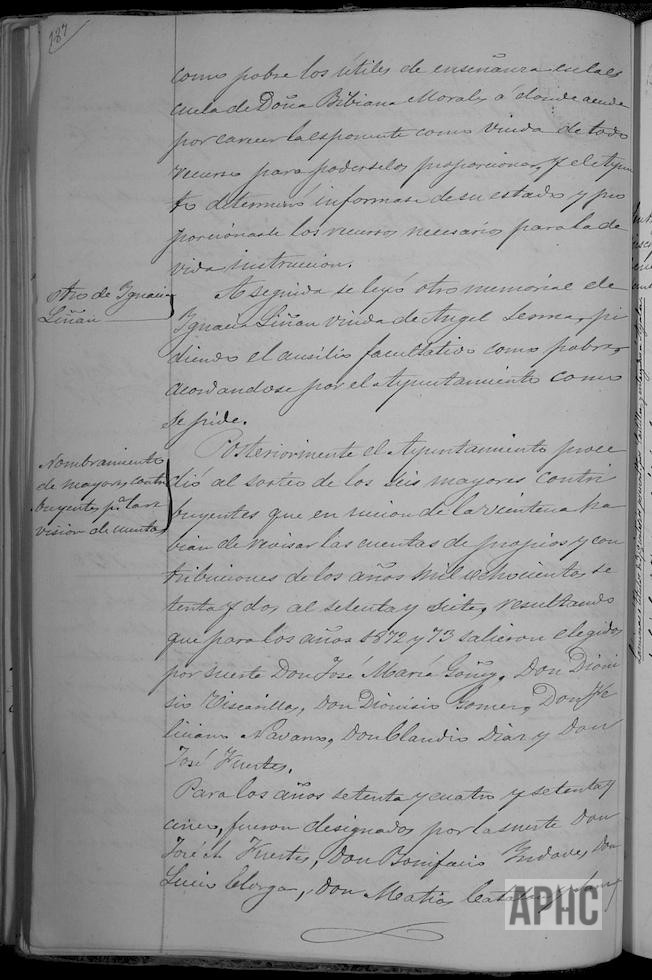 187
como pobre los útiles de enseñanza en la es
cuela de Doña Bibiana Morales á donde acude
por carecer la esponente como viuda de todo
recurso para poderselos proporcionar, y el Ayun
to determinó informase de su estado y pro
porcionarle los recursos necesarios para la de
vida instruccion.
otro de Ignacia
Liñan
A seguida se leyó otro memorial de
Ignacia Liñan viuda de Angel Lesma, pi
diendo el ausilio facultativo como pobre,
acordandose por el Ayuntamiento como
se pide.
Nombramiento
de mayores contri
buyentes pª la re
vision de cuentas
Posteriormente el Ayuntamiento proce
dió al sorteo de los seis mayores contri
buyentes que en union de la veintena ha
bian de revisar las cuentas de propios y con
tribuciones de los años mil ochocientos se
tenta y dos al setenta y siete, resultando
que para los años 1872 y 73 salieron elegidos
por suerte Don José María Goñi, Don Dioni
sio Viscarillas, Don Dionisio Gomez, Don Fe
liciano Navarro, Don Claudio Diaz y Don
José Fuertes.
Para los años setenta y cuatro y setenta y
cinco, fueron designados por la suerte Don
José A. Fuertes, Don Bonifacio Don
Lucio Don Matias Catalan
APHC